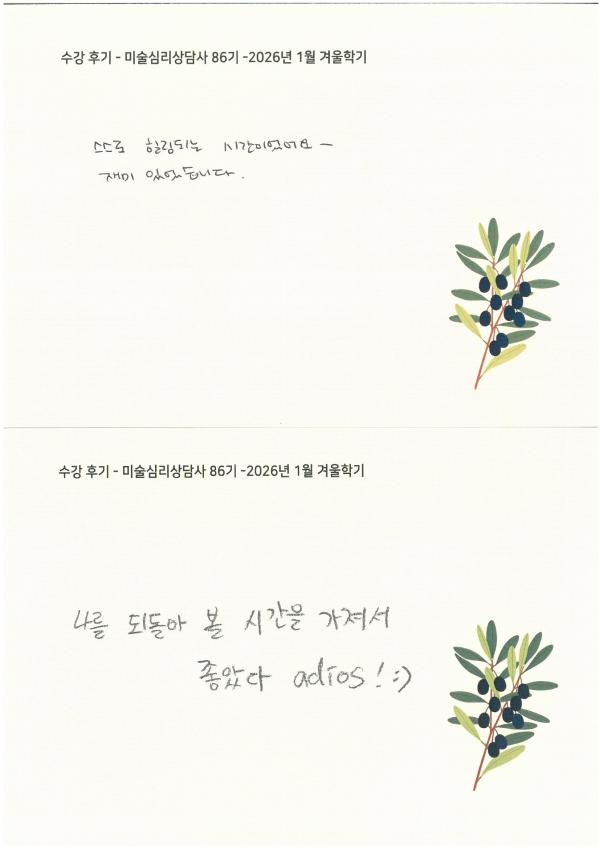 수강 후기 - 미술심리상담사 86기 -2026년 1월 겨울학기
스스로 힐링되는 시간이었어요 ~
재미 있었습니다.
수강 후기 - 미술심리상담사 86기 -2026년 1월 겨울학기
나를 되돌아 볼 시간을 가져서
좋았다 adios! :)